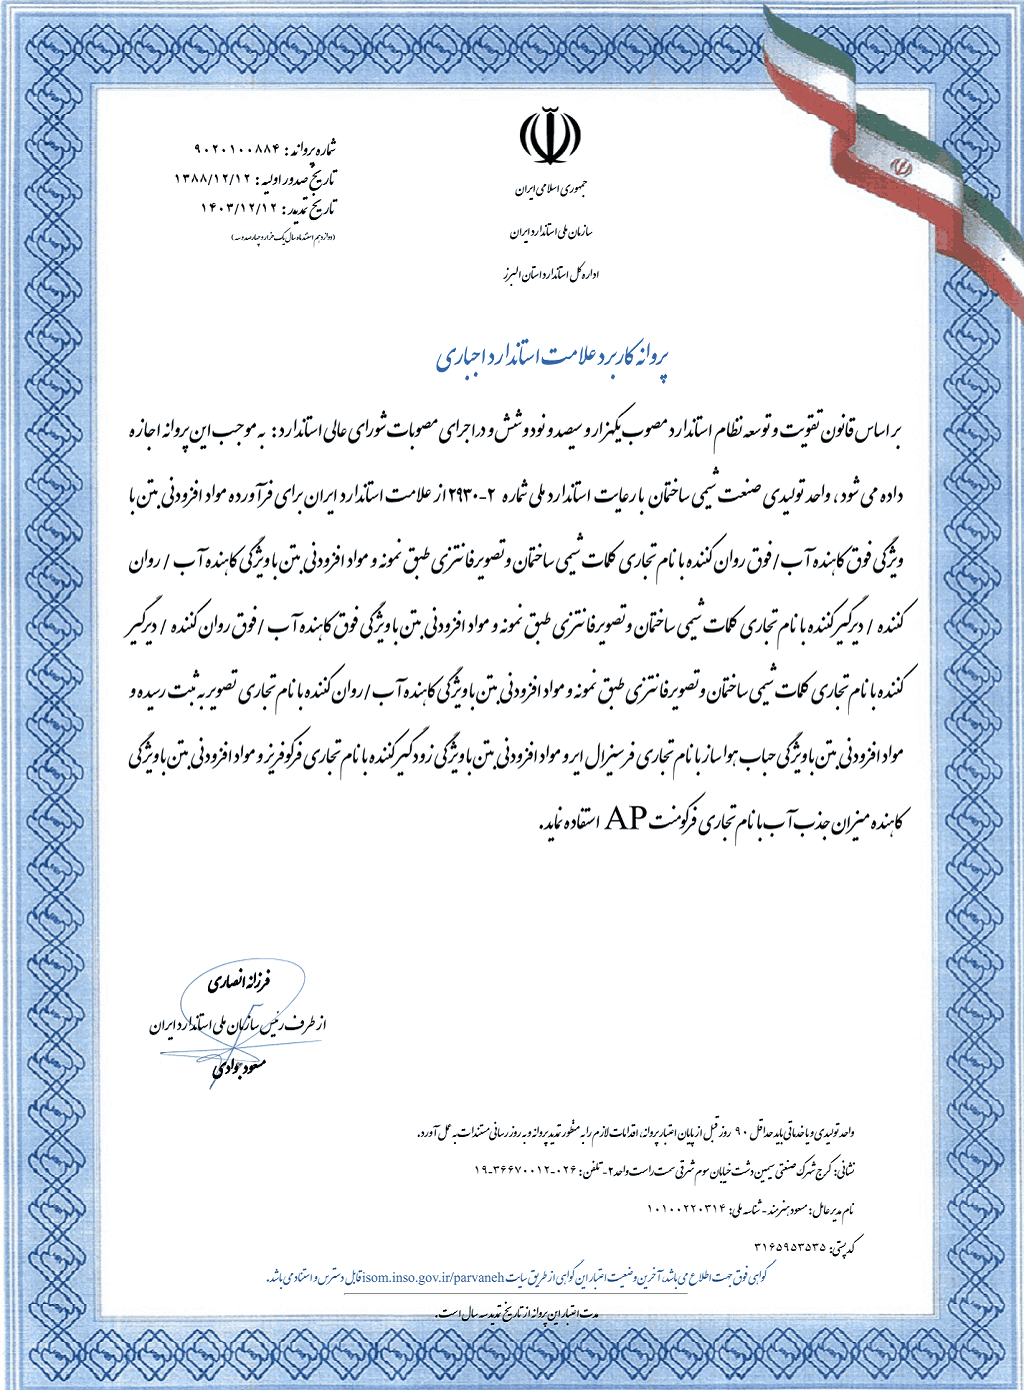 جمهوری اسلامی ایران
سازمان ملی استاندارد ایران
اداره کل استاندارد استان البرز
شماره پروانه : ۹۰۲۰۱۰۰۸۸۴
تاریخ صدور اولیه : ۱۳۸۸/۱۲/۱۲
تاریخ تمدید : ۱۴۰۳/۱۲/۱۲
(دوازدهم اسفند ماه سال یک هزار و چهارصد و سه)
پروانه کاربرد علامت استاندارد اجباری
بر اساس قانون تقویت و توسعه نظام استاندارد مصوب یکهزار و سیصد و نود و شش و در اجرای مصوبات شورای عالی استاندارد : به موجب این پروانه اجازه
داده می شود ، واحد تولیدی صنعت شیمی ساختمان با رعایت استاندارد ملی شماره ۲-۲۹۳۰ از علامت استاندارد ایران برای فرآورده مواد افزودنی بتن با
ویژگی فوق کاهنده آب / فوق روان کننده با نام تجاری کلمات شیمی ساختمان و تصویر فانتزی طبق نمونه و مواد افزودنی بتن با ویژگی کاهنده آب / روان
کننده / دیرگیر کننده با نام تجاری کلمات شیمی ساختمان و تصویر فانتزی طبق نمونه و مواد افزودنی بتن با ویژگی فوق کاهنده آب / فوق روان کننده / دیرگیر
کننده با نام تجاری کلمات شیمی ساختمان و تصویر فانتزی طبق نمونه و مواد افزودنی بتن با ویژگی کاهنده آب / روان کننده با نام تجاری تصویر به ثبت رسیده و
مواد افزودنی بتن با ویژگی حباب هوا ساز با نام تجاری فرسیزال ایر و مواد افزودنی بتن با ویژگی زودگیر کننده با نام تجاری فرکوفریز و مواد افزودنی بتن با ویژگی
کاهنده میزان جذب آب با نام تجاری فرکومنت AP استفاده نماید.
فرزانه انصاری
از طرف رئیس سازمان ملی استاندارد ایران
مسعود جوادی
واحد تولیدی و یا خدماتی باید حداقل ۹۰ روز قبل از پایان اعتبار پروانه، اقدامات لازم را به منظور تمدید پروانه و به روز رسانی مستندات به عمل آورد.
نشانی: کرج شهرک صنعتی سیمین دشت خیابان سوم شرقی سمت راست واحد ۲- تلفن: ۰۲۶-۳۶۶۷۰۰۱۲-۱۹
نام مدیرعامل: مسعود هنرمند - شناسه ملی: ۱۰۱۰۰۲۲۰۳۱۴
کد پستی: ۳۱۶۵۹۵۳۵۳۵
گواهی فوق جهت اطلاع می باشد، آخرین وضعیت اعتبار این گواهی از طریق سایت isom.inso.gov.ir/parvaneh قابل دسترس و استناد می باشد.
مدت اعتبار این پروانه از تاریخ تمدید سه سال است.